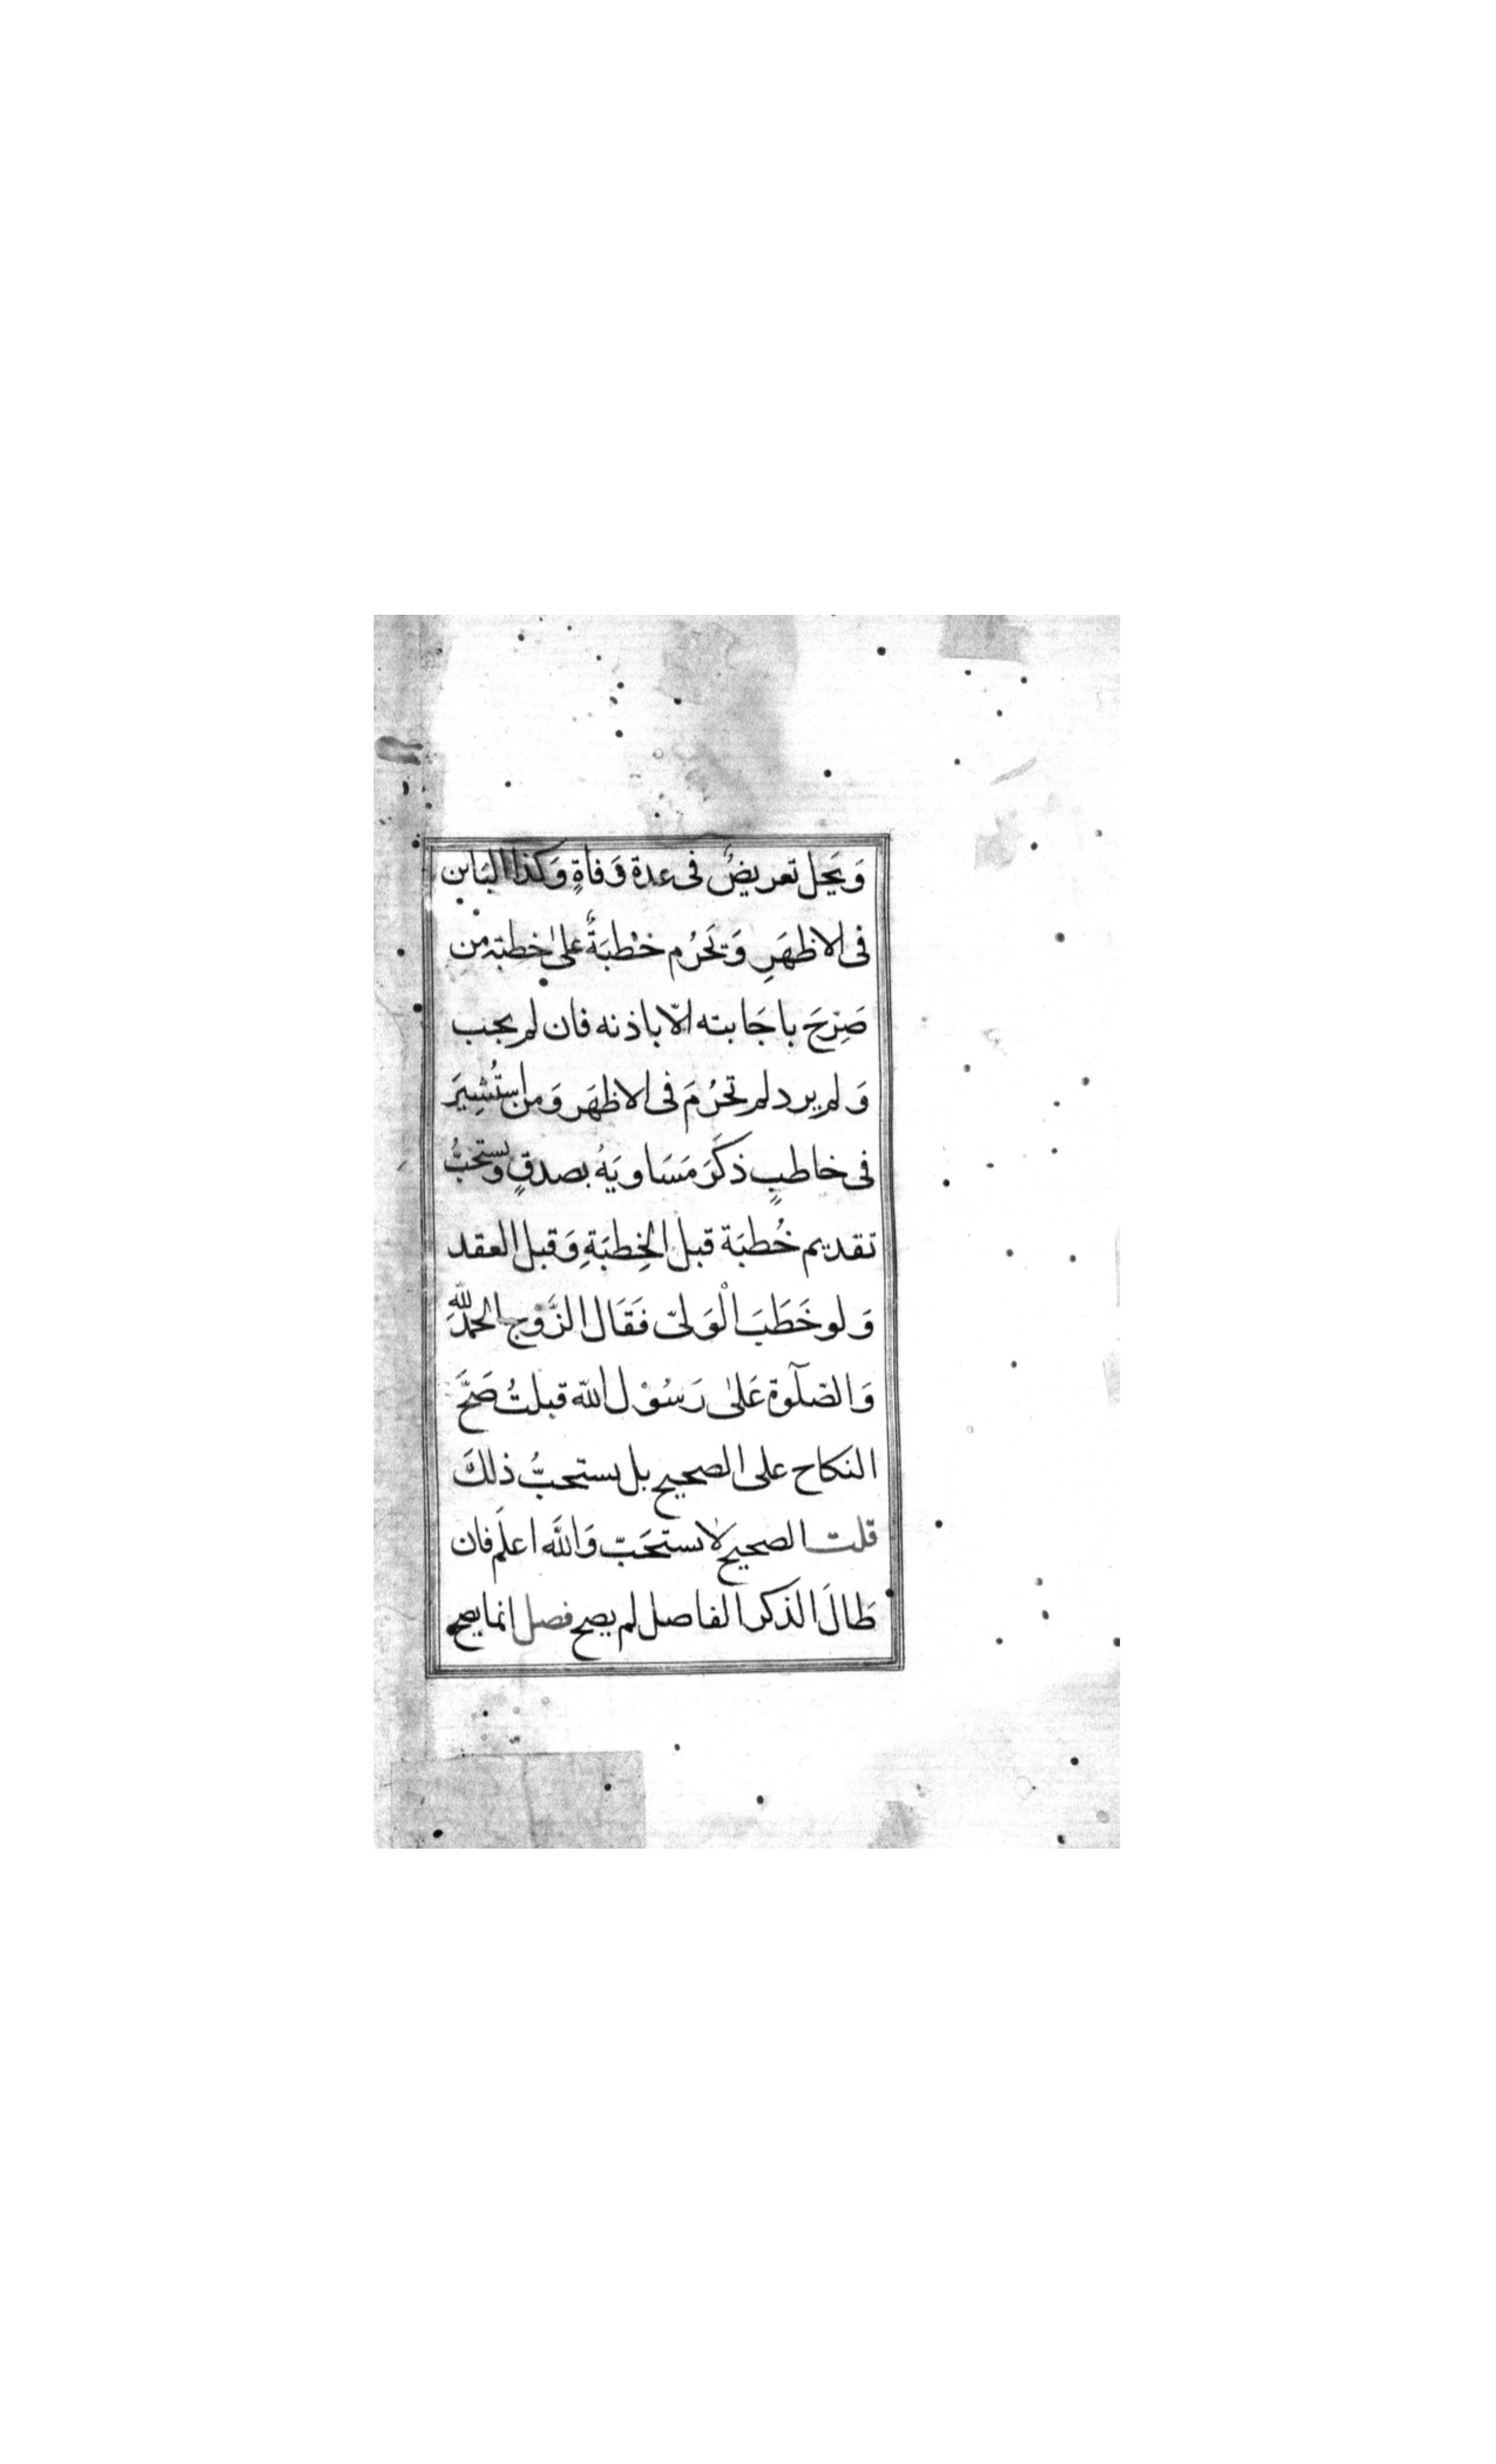 وَيَحل تعريضٌ فى عدة وَفاةٍ وَكذا البَاين
فى الاظهَرِ وَتحَرُم خطبَةٌ علىٰ خطبَة من
صَرِّحَ باجَابته الّا باذنه فان لم يجب
وَلم يرد لم تحرُمَ فى الاظهَر وَمن استُشِيرَ
فى خاطبٍ ذكَرَ مَسَاويَهُ بصدقٍ ويستحبُّ
تقديم خُطبَة قبل الخِطبَةِ وَقبل العقد
وَلو خَطَبَ الْوَلىّ فَقَال الزَّوْج الحمدُ للّٰهِ
وَالصّلٓوة عَلىٰ رَسُوْل اللّه قبلتُ صَحَّ
النَكاح على الصحيح بل يستحبُّ ذلكَ
قلت الصحيح لا يستحَبّ وَاللَّه اعلَم فان
طَالَ الذكر الفاصل لم يصح فصل انما يصح